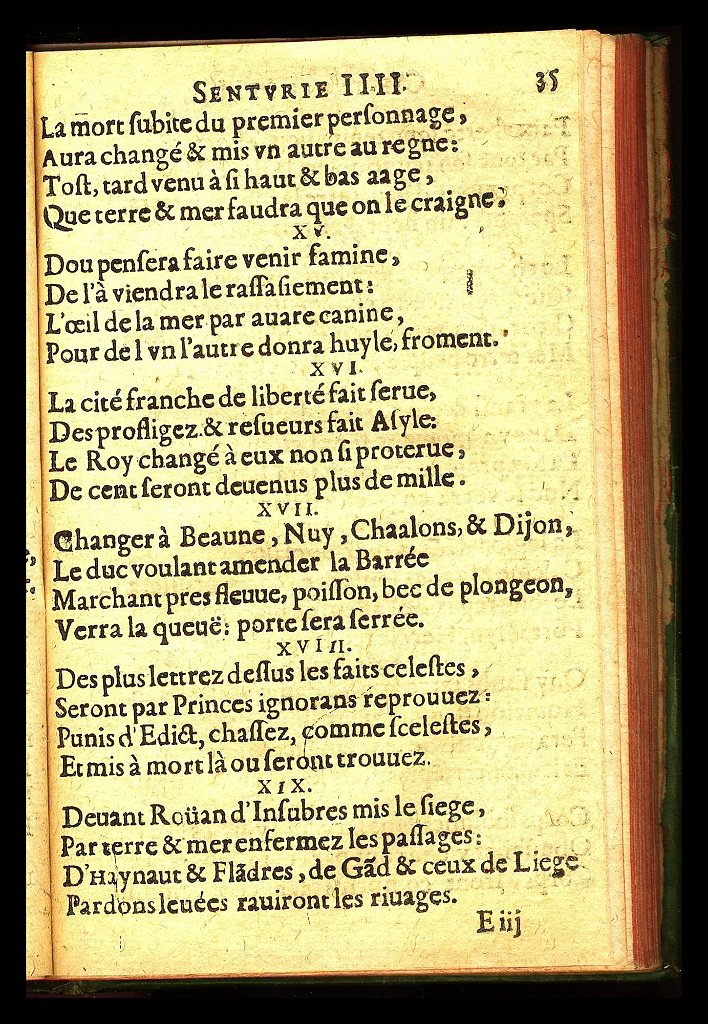 SENTVRIE IIII. 35
La mort ſubite du premier perſonnage,
Aura changé & mis vn autre au regne:
Toſt, tard venu à ſi haut & bas aage,
Que terre & mer faudra que on le craigne.
XV.
Dou penſera faire venir famine,
De l'à viendra le raſſaſiement:
L'œil de la mer par auare canine,
Pour de l vn l'autre donra huyle, froment.
XVI.
La cité franche de liberté fait ſerue,
Des profligez.& reſueurs fait Aſyle:
Le Roy changé à eux non ſi proterue,
De cent ſeront deuenus plus de mille.
XVII.
Changer à Beaune, Nuy, Chaalons, & Dijon,
Le duc voulant amender la Barrée
Marchant pres fleuue, poiſſon, bec de plongeon,
Verra la queuë: porte ſera ſerrée.
XVIII.
Des plus lettrez deſſus les faits celeſtes,
Seront par Princes ignorans reprouuez:
Punis d'Edict, chaſſez, comme ſceleſtes,
Et mis à mort là ou ſeront trouuez.
XIX.
Deuant Roüan d'Inſubres mis le ſiege,
Par terre & mer enfermez les paſſages:
D'Haynaut & Flãdres, de Gãd & ceux de Liege
Par dons leuées rauiront les riuages.
E iij